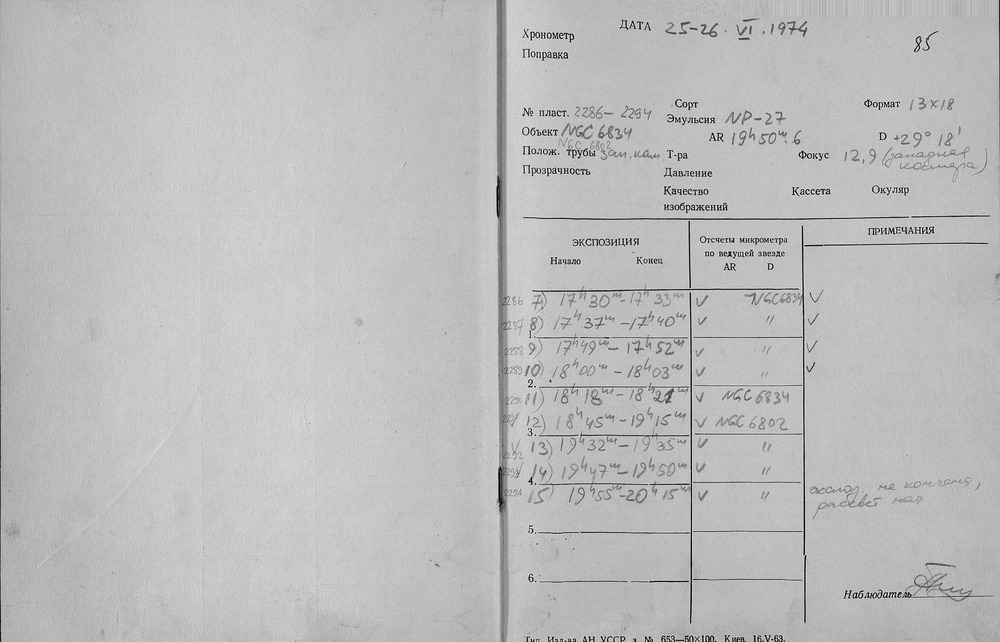 ДАТА 25–26. VI. 1974
Хронометр
85
Поправка
Сорт
Формат 13×18
№ пласт. 2286–2294
Эмульсия NP-27
Объект NGC 6834
AR 19ʰ50ᵐ.6
D +29° 18'
NGC 6802
Полож. трубы зап. кам.
Т-ра
Фокус 12,9 (западная камера)
Прозрачность
Давление
Качество изображений
Кассета
Окуляр
ЭКСПОЗИЦИЯ
Отсчеты микрометра по ведущей звезде
ПРИМЕЧАНИЯ
Начало Конец
AR D
2286 7) 17ʰ30ᵐ–17ʰ33ᵐ V NGC6834 V
2287 8) 17ʰ37ᵐ–17ʰ40ᵐ V " V
1.
2288 9) 17ʰ49ᵐ–17ʰ52ᵐ V " V
2289 10) 18ʰ00ᵐ–18ʰ03ᵐ V " V
2.
2290 11) 18ʰ18ᵐ–18ʰ21ᵐ V NGC 6834
12) 18ʰ45ᵐ–19ʰ15ᵐ V NGC 6802
3.
2292 13) 19ʰ32ᵐ–19ʰ35ᵐ V "
2293 14) 19ʰ47ᵐ–19ʰ50ᵐ V "
4.
2294 15) 19ʰ55ᵐ–20ʰ15ᵐ V " экспоз. не кончена,
рассвет
5.
6.
Наблюдатель
Тип. Изд-ва АН УССР, з. № 653—50×100. Киев. 16.V-63.